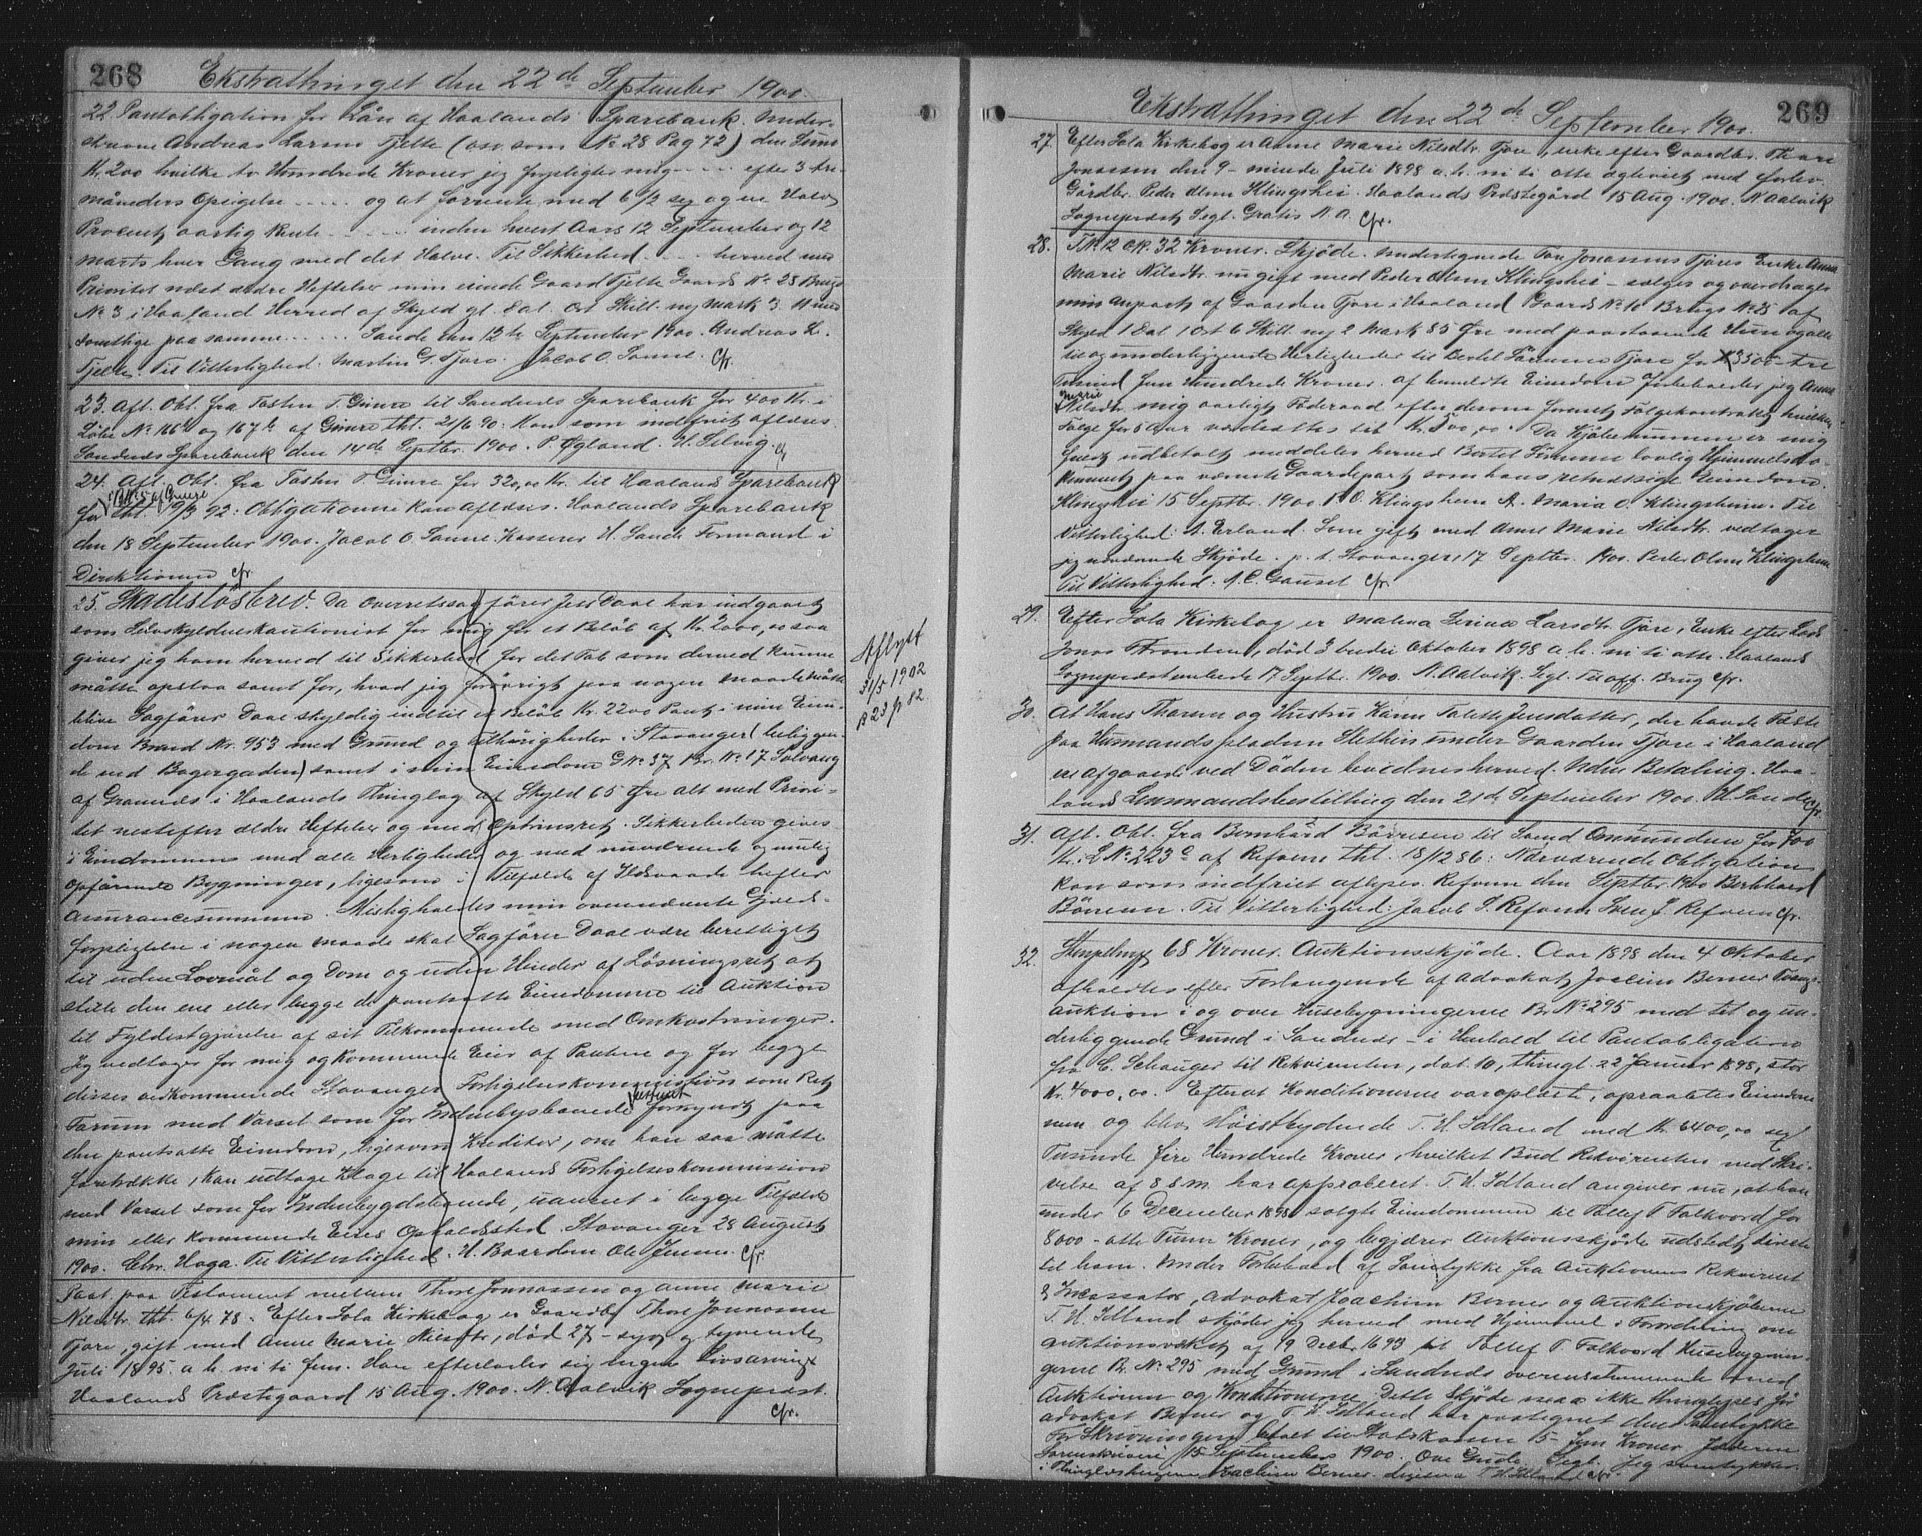 268 Ekstrathinget den 22de September 1900.
22. Pantobligation for Lån af Haalands Sparebank. Under-
skrevne Andreas Larsen Tjelte (osv. som No 28 Pag 72) den Sum
Kr. 200 hvilke to Hundrede Kroner jeg forpligter mig .... efter 3 tre
måneders Opsigelse ..... og at forrente med 6½ sex og en Halv
Procent aarlig Rente ........ inden hvert Aars 12 September og 12
Marts hver Gang med det Halve. Til Sikkerhed .... herved med
Prioritet næst ældre Heftelser min eiende Gaard Tjelte Gaards No 28 Brugs
No 3 i Haaland Herred af Skyld gl. Dal. Ort Skill. ny Mark 3.
samtlige paa samme ..... Sande den 12te September 1900. Andreas L.
Tjelte. Til Vitterlighed. Martin G. Tjora. Jacob O. Sømme. Cfr.
23. Afl. Obl. fra Tosten T. Gimre til Sandnæs Sparebank for 400 Kr. i
Løbe No 166 b og 167 b af Gimre thl. 21/6 90: Kan som indfriet aflæses.
Sandnæs Sparebank den 14de Septbr. 1900. P. Øgland. H. Selvig. Cfr.
24. Afl. Obl. fra Tosten T. Gimre for 320,00 Kr. til Haalands Sparebank
i B.No 5 af Gimre
for thl. 19/3 92: Obligationen kan aflæses. Haalands Sparebank
den 18 September 1900. Jacob O. Sømme. Kasserer. H. Sande Formand i
Direktionen Cfr.
25. Skadesløsbrev. Da Overretssagfører Jess Daae har indgaaet
som Selvskyldnerkautionist for mig for et Beløb af Kr. 2000,00 saa
giver jeg ham herved til Sikkerhed for det Tab som derved kunne
måtte opstaa samt for, hvad jeg forøvrigt paa nogen Maade måtte
blive Sagfører Daae skyldig indtil et Beløb Kr. 2200 Pant i min Eien-
dom Brand Nr. 953 med Grund og Tilhørigheder i Stavanger (beliggen-
de ved Bagergaden) samt i min Eiendom G No 37 Br. No 17 Solvang
af Grannes i Haalands Thinglag af Skyld 65 Øre alt med Priori-
tet næstefter ældre Heftelser og med Optrinsret. Sikkerheden gives
i Eiendommene med alle Herligheder og med nuværende og mulig
opførende Bygninger, ligesom i Tilfælde af Ildsvaade hefter
Assurancesummen. Misligholdes min ovennævnte Gjælds-
forpligtelse i nogen Maade skal Sagfører Daae være berettiget
til uden Lovmål og Dom og uden Hinder af Løsningsret at
stille den ene eller begge de pantsatte Eiendomme til Auktion
til Fyldestgjørelse af sit Tilkommende med Omkostninger.
Jeg vedtager for mig og kommende Eier af Pantene og for begge
disses vedkommende Stavanger Forligelseskommission som Ret
Forum med Varsel som for Indenbysboende forsynet paa
den pantsatte Eiendom, ligesom Kreditor, om han saa måtte
foretrække, kan udtage Klage til Haalands Forligelseskommission
med Varsel som for Indenbygdsboende, uanset i begge Tilfælde
min eller kommende Eiers Opholdssted. Stavanger 28 August
1900. Chr. Haga. Til Vitterlighed. H. Baardsen Ole Jensen. Cfr.
Aflyst
31/5 1902
B 23 p 82
Paat. paa Testament mellem Thore Jonnassen og Anne Marie
Nilsdtr. thl. 6/4 78. Efter Sola Kirkebog er Gaardbr. Thore Jonnassen
Tjore, gift med Anne Marie Nilsdtr, død 27 - syv og tyvende
Juli 1895. a. h. ni ti fem. Han efterlader sig ingen Livsarving.
Haalands Præstegaard 15 Aug. 1900. N. Aalvik. Sognepræst.
Cfr.
Ekstrathinget den 22de September 1900. 269
27. Efter Sola Kirkebog er Anne Marie Nilsdtr. Tjore, enke efter Gaardbr. Thore
Jonassen den 9 - niende Juli 1898 a. h. ni ti otte ægteviet med forhv.
Gårdbr. Peder Olsen Klingshei. Haalands Præstegård 15 Aug. 1900. N Aalvik
Sognepræst Segl. Gratis N. A. Cfr.
28. T.No 12 Ok. 32 Kroner. Skjøde. Undertegnede Tore Jonassens Tjores Enke Anna
Marie Nilsdtr. nu gift med Peder Olsen Klingshei - sælger og overdrager
min Anpart af Gaarden Tjore i Haaland Gaards No 10 Brugs No 25 af
Skyld 1 Dal. 1 Ort 6 Skill. ny 2 Mark 85 Øre med paastaaende Huse og alle
til og underliggende Herligheder til Bertel Sømme Tjore for Kr 3500 - tre
Tusind fem Hundrede Kroner. af hvilke Eiendom forbeholder jeg Anna
Marie
Nilsdtr. mig aarligt Føderaad efter derom fornet Følgekontrakt hvilken
Følge for 5 Aar værdsættes til Kr. 500,00. Da Kjøbesummen er mig
fuldt udbetalt meddeles herved Bertel Sømme lovlig Hjemmelsdo-
kument paa nævnte Gaardepart som hans retmæssige Eiendom.
Klingshei 15 Septbr. 1900. P. O. Klingsheim A. Maria O. Klingsheim. Til
Vitterlighed: A. Erland. Som gift med Anne Marie Nilsdtr. vedtager
jeg nærværende Skjøde. p. t. Stavanger 17 Septbr. 1900. Peder Olsen Klingsheim
Til Vitterlighed. A. C. Gauset Cfr.
29. Efter Sola Kirkebog er Malena Serina Larsdtr. Tjore, Enke efter
Jonas Thronsen, død 3 tredie Oktober 1898 a. h. ni ti otte. Haalands
Sognepræstembede 17 Septbr. 1900. N. Aalvik. Segl. Til off. Brug Cfr.
30. At Hans Thorsen og Hustru Karen Tolette Jensdatter, der havde Fæste
paa Husmandspladsen under Gaarden Tjore i Haaland
er afgaaet ved Døden bevidnes herved. Uden Betaling. Haa-
lands Lensmandsbestilling den 21de September 1900. H. Sande Cfr.
31. Afl. Obl. fra Bernhard Børresen til Svend Omundsen for 700
Kr. i L No 223 c af Refsnes thl. 18/12 86: Nærværende Obligation
kan som indfriet aflyses. Refsnes den Septbr. 1900 Bernhard
Børresen. Til Vitterlighed: Jacob S. Refsnes Sven J. Refsnes Cfr.
32. Stempelmrk 68 Kroner. Auktionsskjøde. Aar 1898 den 4 Oktober
afholdtes efter Forlangende af Advokat Joachim Berner Tvangs-
auktion i og over Husebygningerne Br. No 295 med til og un-
derliggende Grund i Sandnæs - i Henhold til Pantobligation
fra C. Schanger til Rekvirenten, dat. 10, thingl. 22 Januar 1898, stor
Kr. 4000,00. Efterat Konditionerne var oplæste, opraabtes Eiendom-
men og blev Høistbydende T. H. Idland med Kr. 6400,00 sex
Tusinde fire Hundrede Kroner, hvilket Bud Rekvirenten ved Skri-
velse af 8 s. m. har approberet. T. H. Idland angiver nu, at han
under 6 December 1898 solgte Eiendommen til Tollef T. Falkvord for
8000 - otte Tusen Kroner, og begjærer Auktionsskjøde udstedt direkte
til ham. Under Forbehold af Samtykke fra Auktionens Rekvirent
& Incassator, Advokat Joachim Berner og Auktionskjøberen
T. H. Idland skjøder jeg herved med Hjemmel i Forordning om
Auktionsvæsenet af 19 Decbr. 1693 til Tollef T. Falkvord Husebygnin-
gerne Br. No 295 med Grund i Sandnæs overensstemmende med
Auktionen og Konditionerne. Dette Skjøde maa ikke thinglyses før
Advokat Berner og T. H. Idland har paategnet den Samtykke
For Skrivningen betalt til Statskassen 5 - fem Kroner. Jæderens
Sorenskriveri 15 September 1900. Ove Gude. Segl. Jeg samtykker
i Thinglæsningen Joachim Berner. Ligesaa T. H. Idland Cfr.